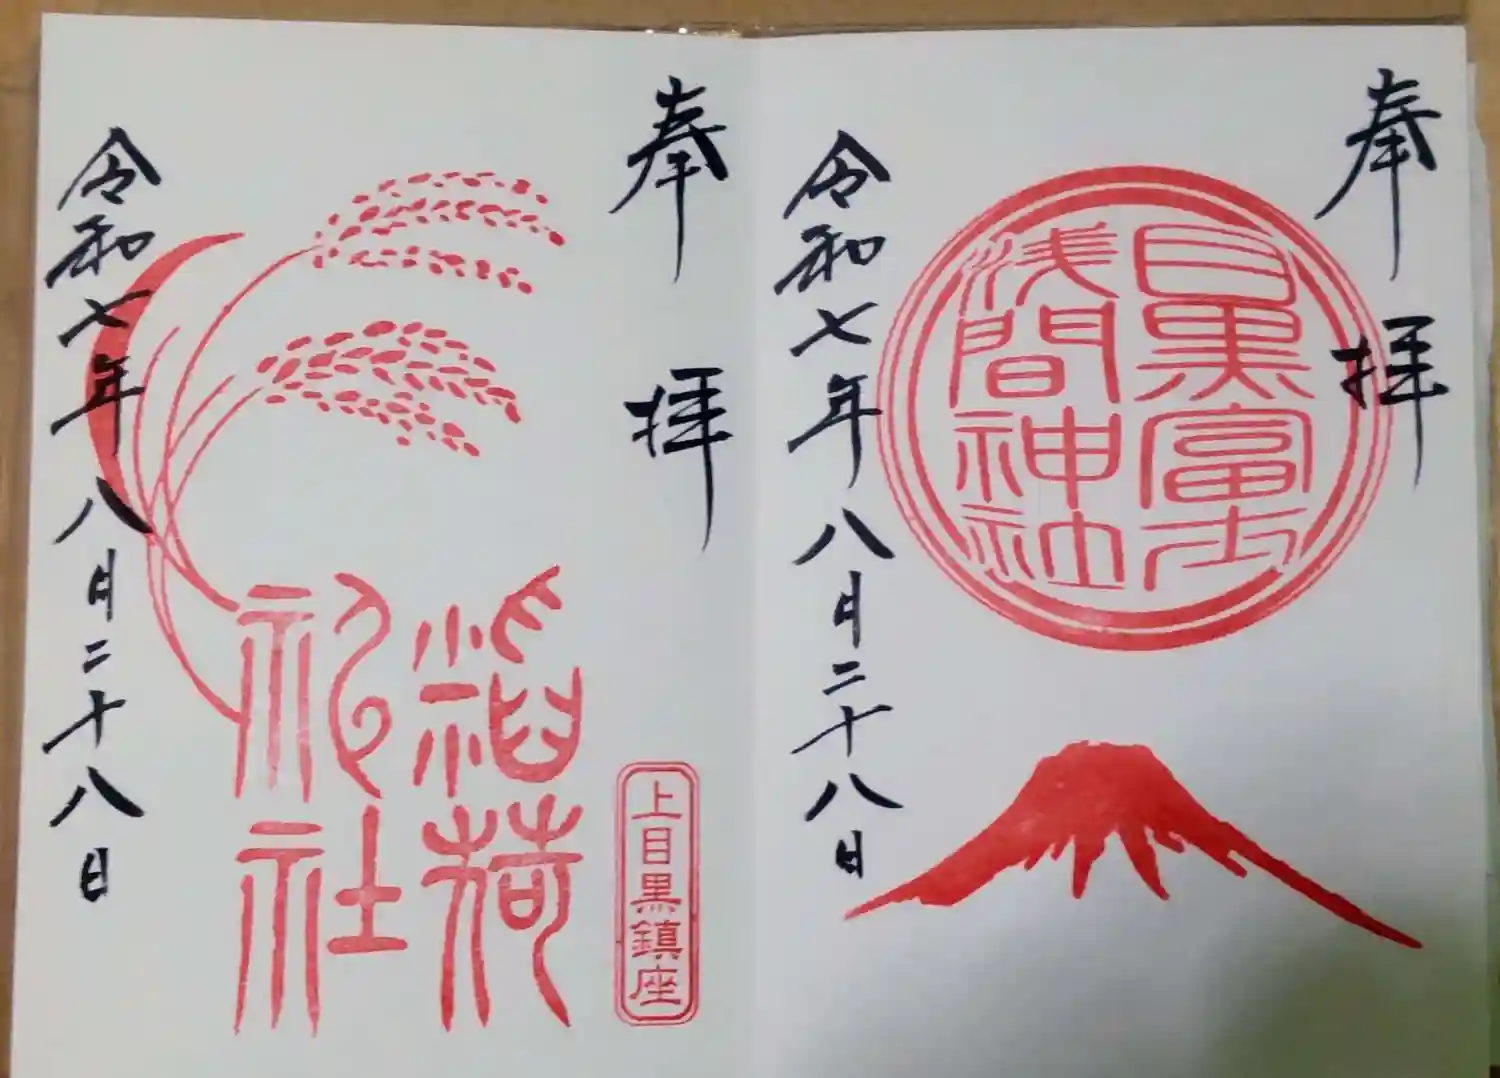 奉拝
目黒富士
浅間神社
令和七年八月二十八日
奉拝
上目黒鎮座
稲荷
神社
令和七年八月二十八日